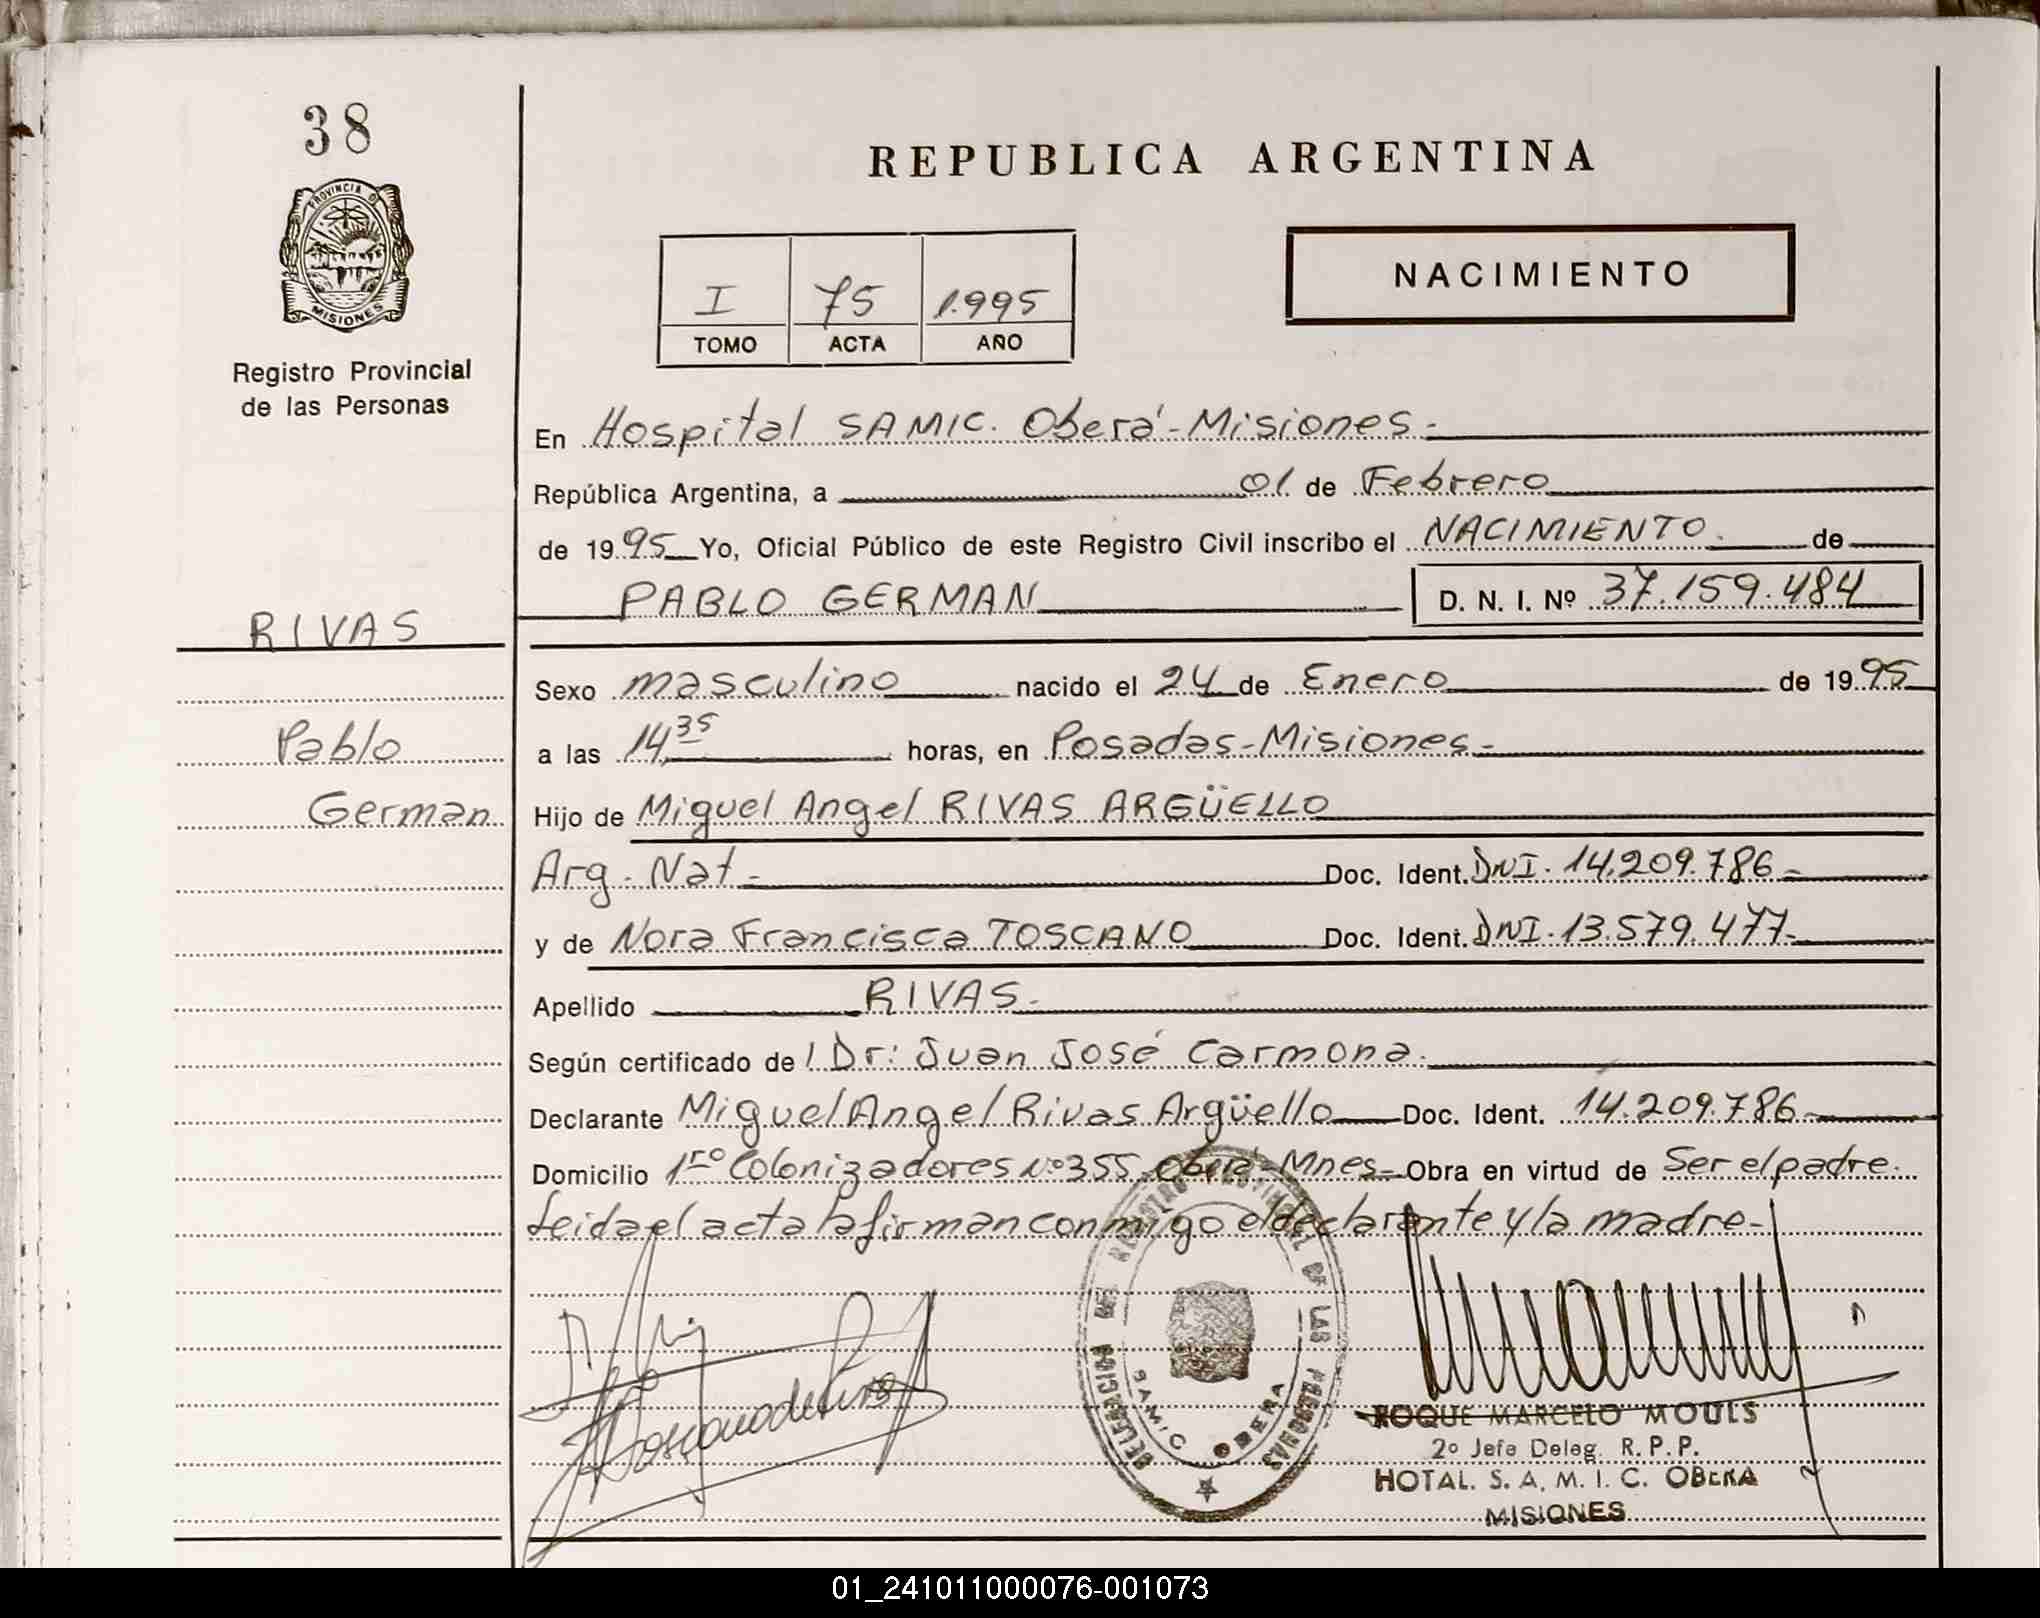 38
PROVINCIA D
MISIONES
Registro Provincial
de las Personas
RIVAS
Pablo
German
REPUBLICA ARGENTINA
I 75 1.995
TOMO ACTA AÑO
NACIMIENTO
En Hospital SAMIC. Oberá-Misiones.-
República Argentina, a 01 de Febrero
de 1995 Yo, Oficial Público de este Registro Civil inscribo el NACIMIENTO. de
PABLO GERMAN D. N. I. Nº 37.159.484
Sexo masculino nacido el 24 de Enero de 1995
a las 14,35 horas, en Posadas-Misiones.-
Hijo de Miguel Angel RIVAS ARGÜELLO
Arg. Nat.- Doc. Ident. DNI. 14.209.786.-
y de Nora Francisca TOSCANO Doc. Ident. DNI. 13.579.477.-
Apellido RIVAS.-
Según certificado de l Dr: Juan José Carmona.
Declarante Miguel Angel Rivas Argüello Doc. Ident. 14.209.786.-
Domicilio 1ro Colonizadores Nº 355. Oberá-Mnes- Obra en virtud de Ser el padre.
Leida el acta la firman conmigo el declarante y la madre.-
DELEGACION DEL REGISTRO PROVINCIAL DE LAS PERSONAS
SAMIC OBERA
Toscano de Rivas
ROQUE MARCELO MOULS
2º Jefe Deleg. R. P. P.
HOTAL. S. A. M. I. C. OBERA
MISIONES
01_241011000076-001073